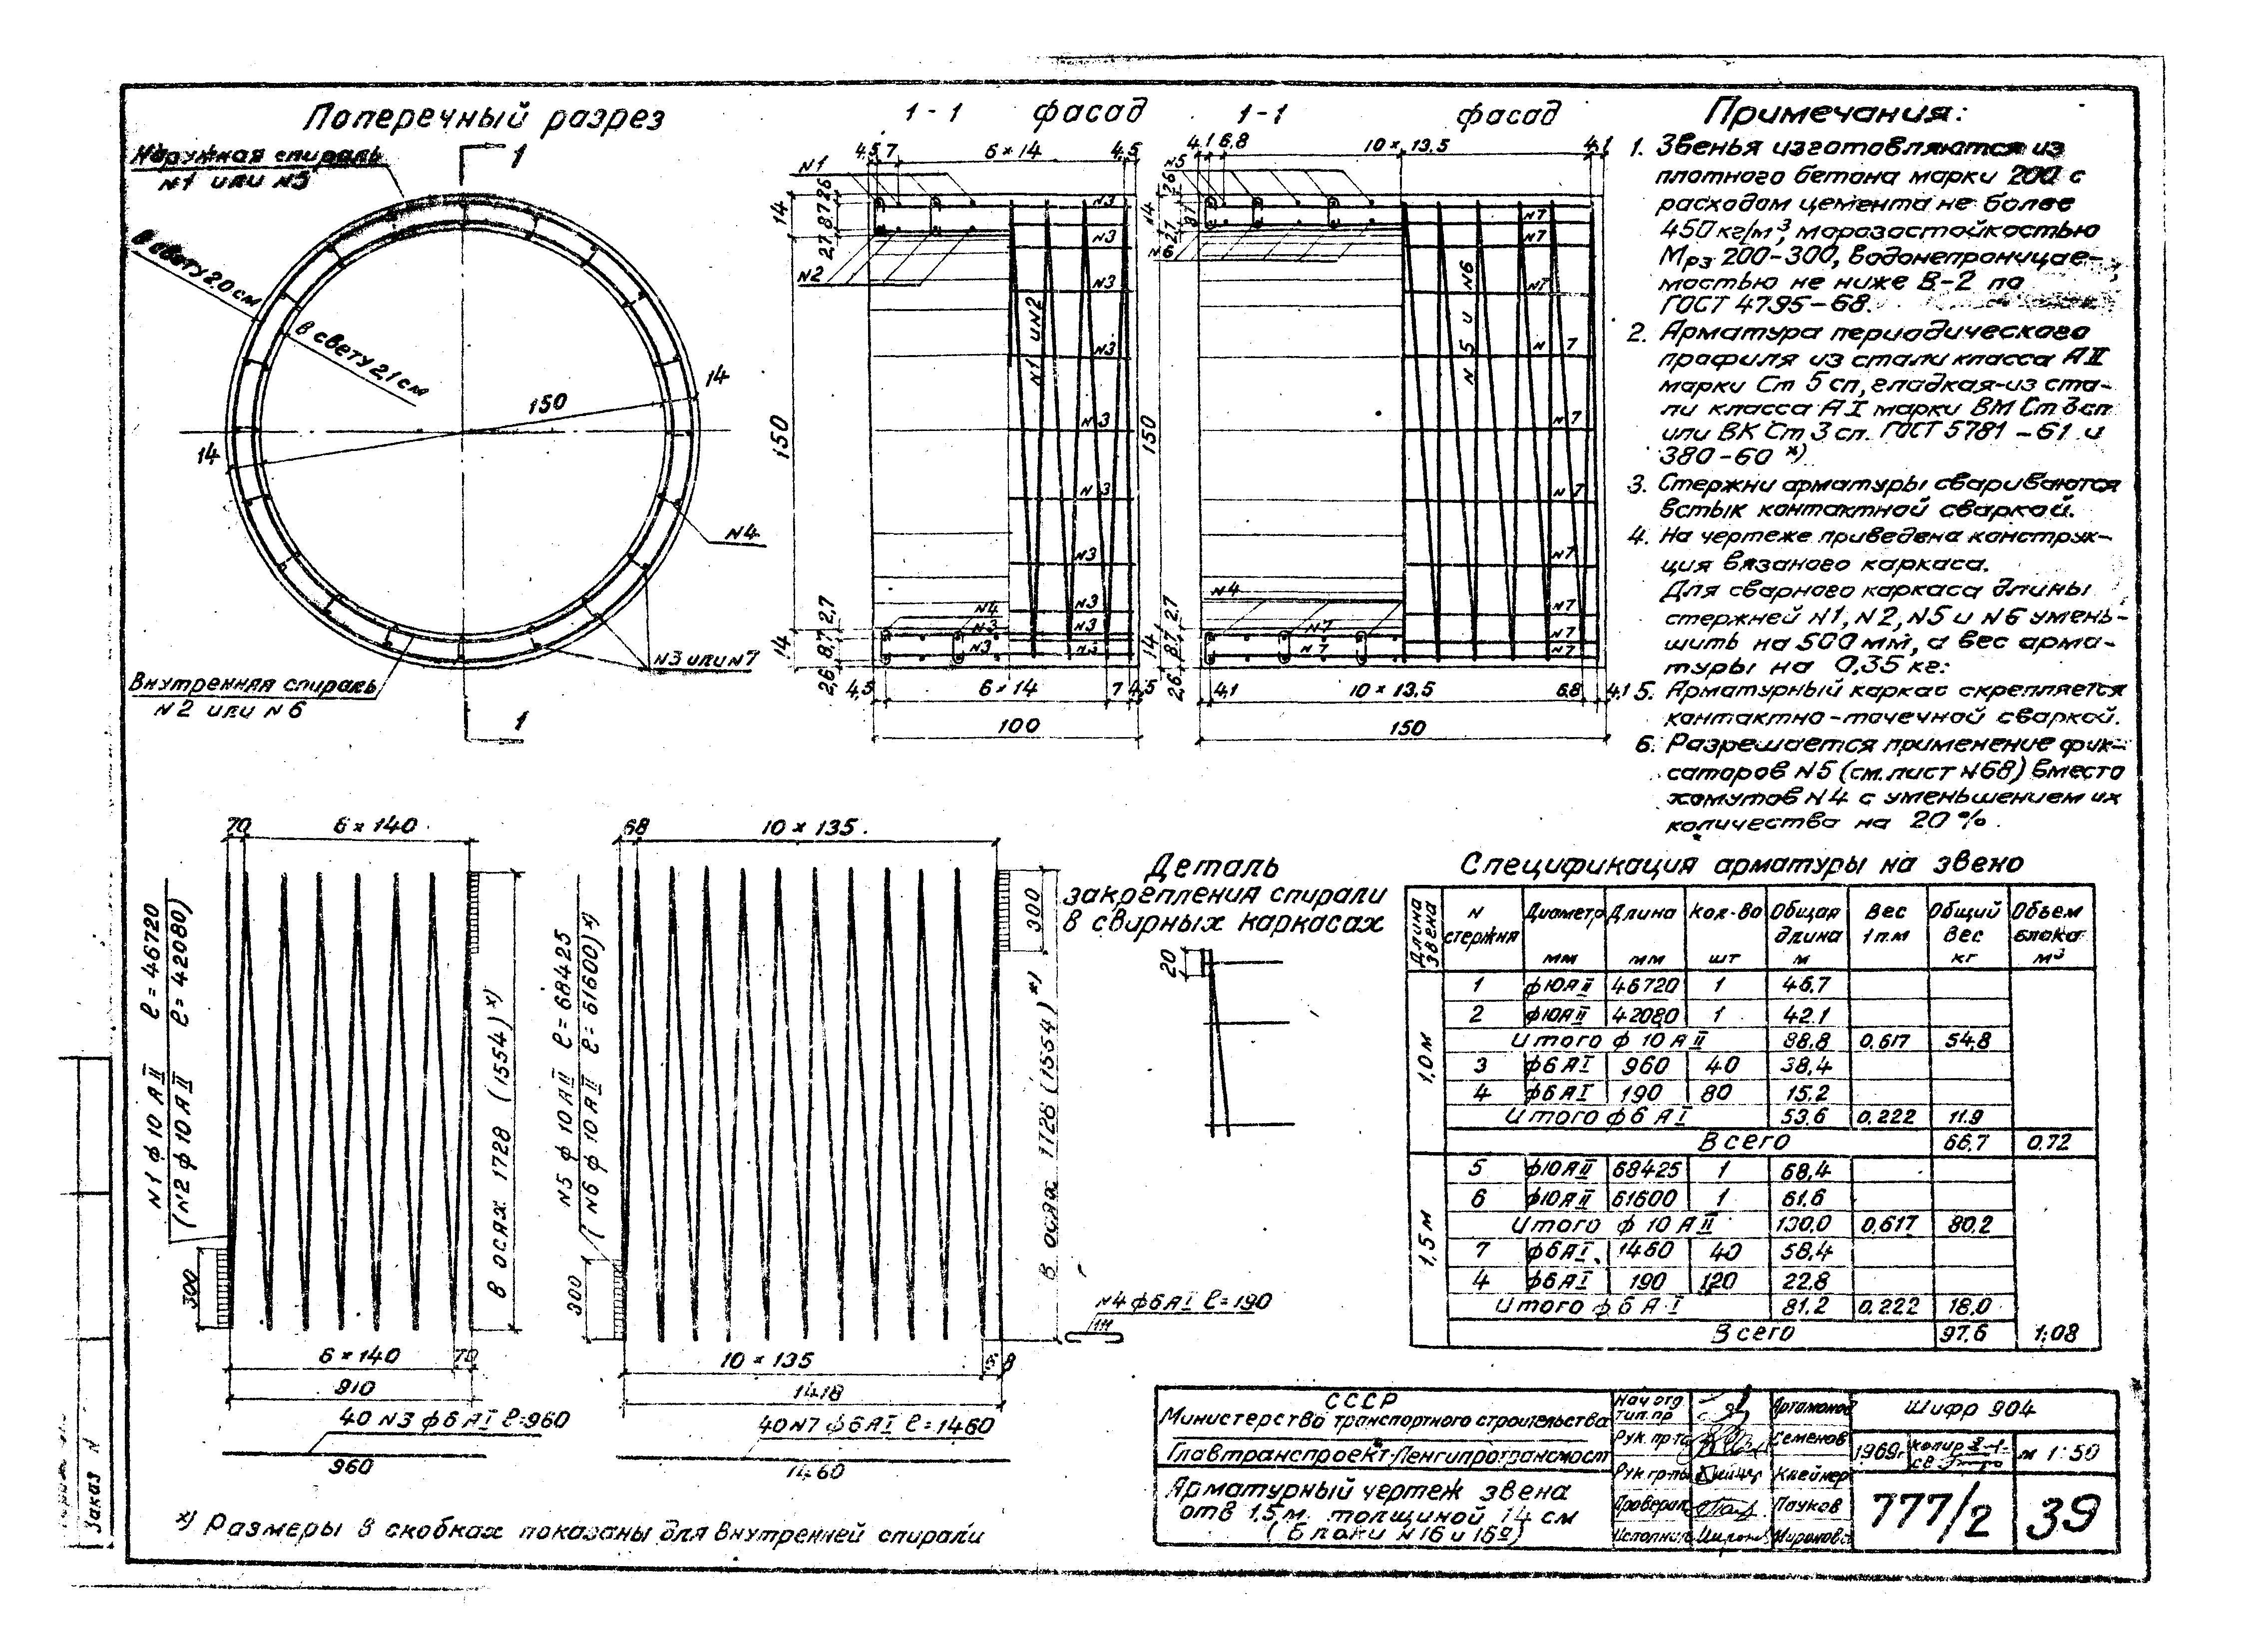 Поперечный разрез
Наружная спираль
N1 или N5
в свету 2.0 см
в свету 2,1 см
150
14
14
N4
N3 или N7
Внутренняя спираль
N2 или N6
1
1
1-1 фасад
4,5 7 6×14 4,5
N1
N2
14
2,6
8,7
2,7
150
N1 и N2
N3
N3
N3
N3
N3
N3
N3
N3
N4
N3
N3
2,7
8,7
2,6
14
4,5 6×14 7 4,5
100
1-1 фасад
4,1 6,8 10×13,5 4,1
N5
N6
14
150
N5 и N6
N7
N7
N7
N7
N7
N7
N7
N7
N7
N4
N7
N7
2,7
8,7
2,6
14
4,1 10×13,5 6,8 4,1
150
Примечания:
1. Звенья изготовляются из
плотного бетона марки 200 с
расходом цемента не более
450 кг/м³, морозостойкостью
Мрз 200-300, водонепроницае-
мостью не ниже В-2 по
ГОСТ 4795-68.
2. Арматура периодического
профиля из стали класса АII
марки Ст 5 сп, гладкая-из ста-
ли класса АI марки ВМ Ст 3 сп
или ВК Ст 3 сп. ГОСТ 5781-61 и
380-60 *)
3. Стержни арматуры свариваются
встык контактной сваркой.
4. На чертеже приведена конструк-
ция вязаного каркаса.
Для сварного каркаса длины
стержней N1, N2, N5 и N6 умень-
шить на 500 мм, а вес арма-
туры на 0,35 кг.
5. Арматурный каркас скрепляется
контактно-точечной сваркой.
6. Разрешается применение фик-
саторов N5 (см. лист N68) вместо
хомутов N4 с уменьшением их
количества на 20 %.
70 6×140
N1 ф 10 АII ℓ=46720
(N2 ф 10 АII ℓ=42080)
300
В осях 1728 (1554) *)
6×140 70
910
40 N3 ф6 АI ℓ=960
960
68 10×135
N5 ф 10 АII ℓ=68425
(N6 ф 10 АII ℓ=61600) *)
300
300
В осях 1728 (1554) *)
10×135 68
1418
40 N7 ф6 АI ℓ=1460
1460
Деталь
закрепления спирали
в свирных каркасах
20
N4 ф6 АI ℓ=190
111
*) Размеры в скобках показаны для внутренней спирали
Спецификация арматуры на звено
Длина звена N стержня Диаметр мм Длина мм Кол-во шт Общая длина м Вес 1 п.м Общий вес кг Объем блока м³
1,0 м
1 ф10АII 46720 1 46.7
2 ф10АII 42080 1 42.1
Итого ф 10 АII 88,8 0,617 54,8
3 ф6 АI 960 40 38,4
4 ф6 АI 190 80 15.2
Итого ф 6 АI 53.6 0.222 11.9
Всего 66,7 0.72
1,5 м
5 ф10АII 68425 1 68,4
6 ф10АII 61600 1 61.6
Итого ф 10 АII 130,0 0,617 80.2
7 ф6АI 1460 40 58,4
4 ф6АI 190 120 22.8
Итого ф 6 АI 81.2 0.222 18.0
Всего 97.6 1.08
СССР
Министерство транспортного строительства
Главтранспроект-Ленгипротрансмост
Арматурный чертеж звена
отв 1.5 м. толщиной 14 см
(Блоки N16 и 16а)
Нач отд
Тип. пр Артамонов
Рук. пр-та Семенов
Рук. гр-пы Клейнер
Проверил Пауков
Исполнил Миронова
Шифр 904
1969г копир м 1:50
777/2 39
Заказ N